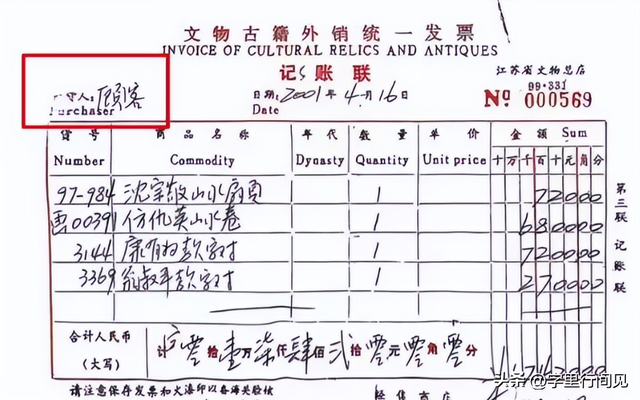 文物古籍外销统一发票
INVOICE OF CULTURAL RELICS AND ANTIQUES
记账联
江苏省文物总店
99·331
人: 顾客
Purchaser
日期: 2001年4月16
Date
No 000569
货号 商品名称 年代 数量 单价 金额 Sum
Number Commodity Dynasty Quantity Unit price 十万千百十元角分
97-984 沈宗敬山水扇页 1 72000
00391 仿仇英山水卷 1 680000
3144 康有为款字对 1 720000
3369 翁叔平款字对 1 270000
合计人民币
(大写)
零拾壹万柒仟肆佰贰拾零元零角零分
1742000
第三联 记账联
请注意保存发票和火漆印以备海关验核
经售商店
头条 @字里行间见